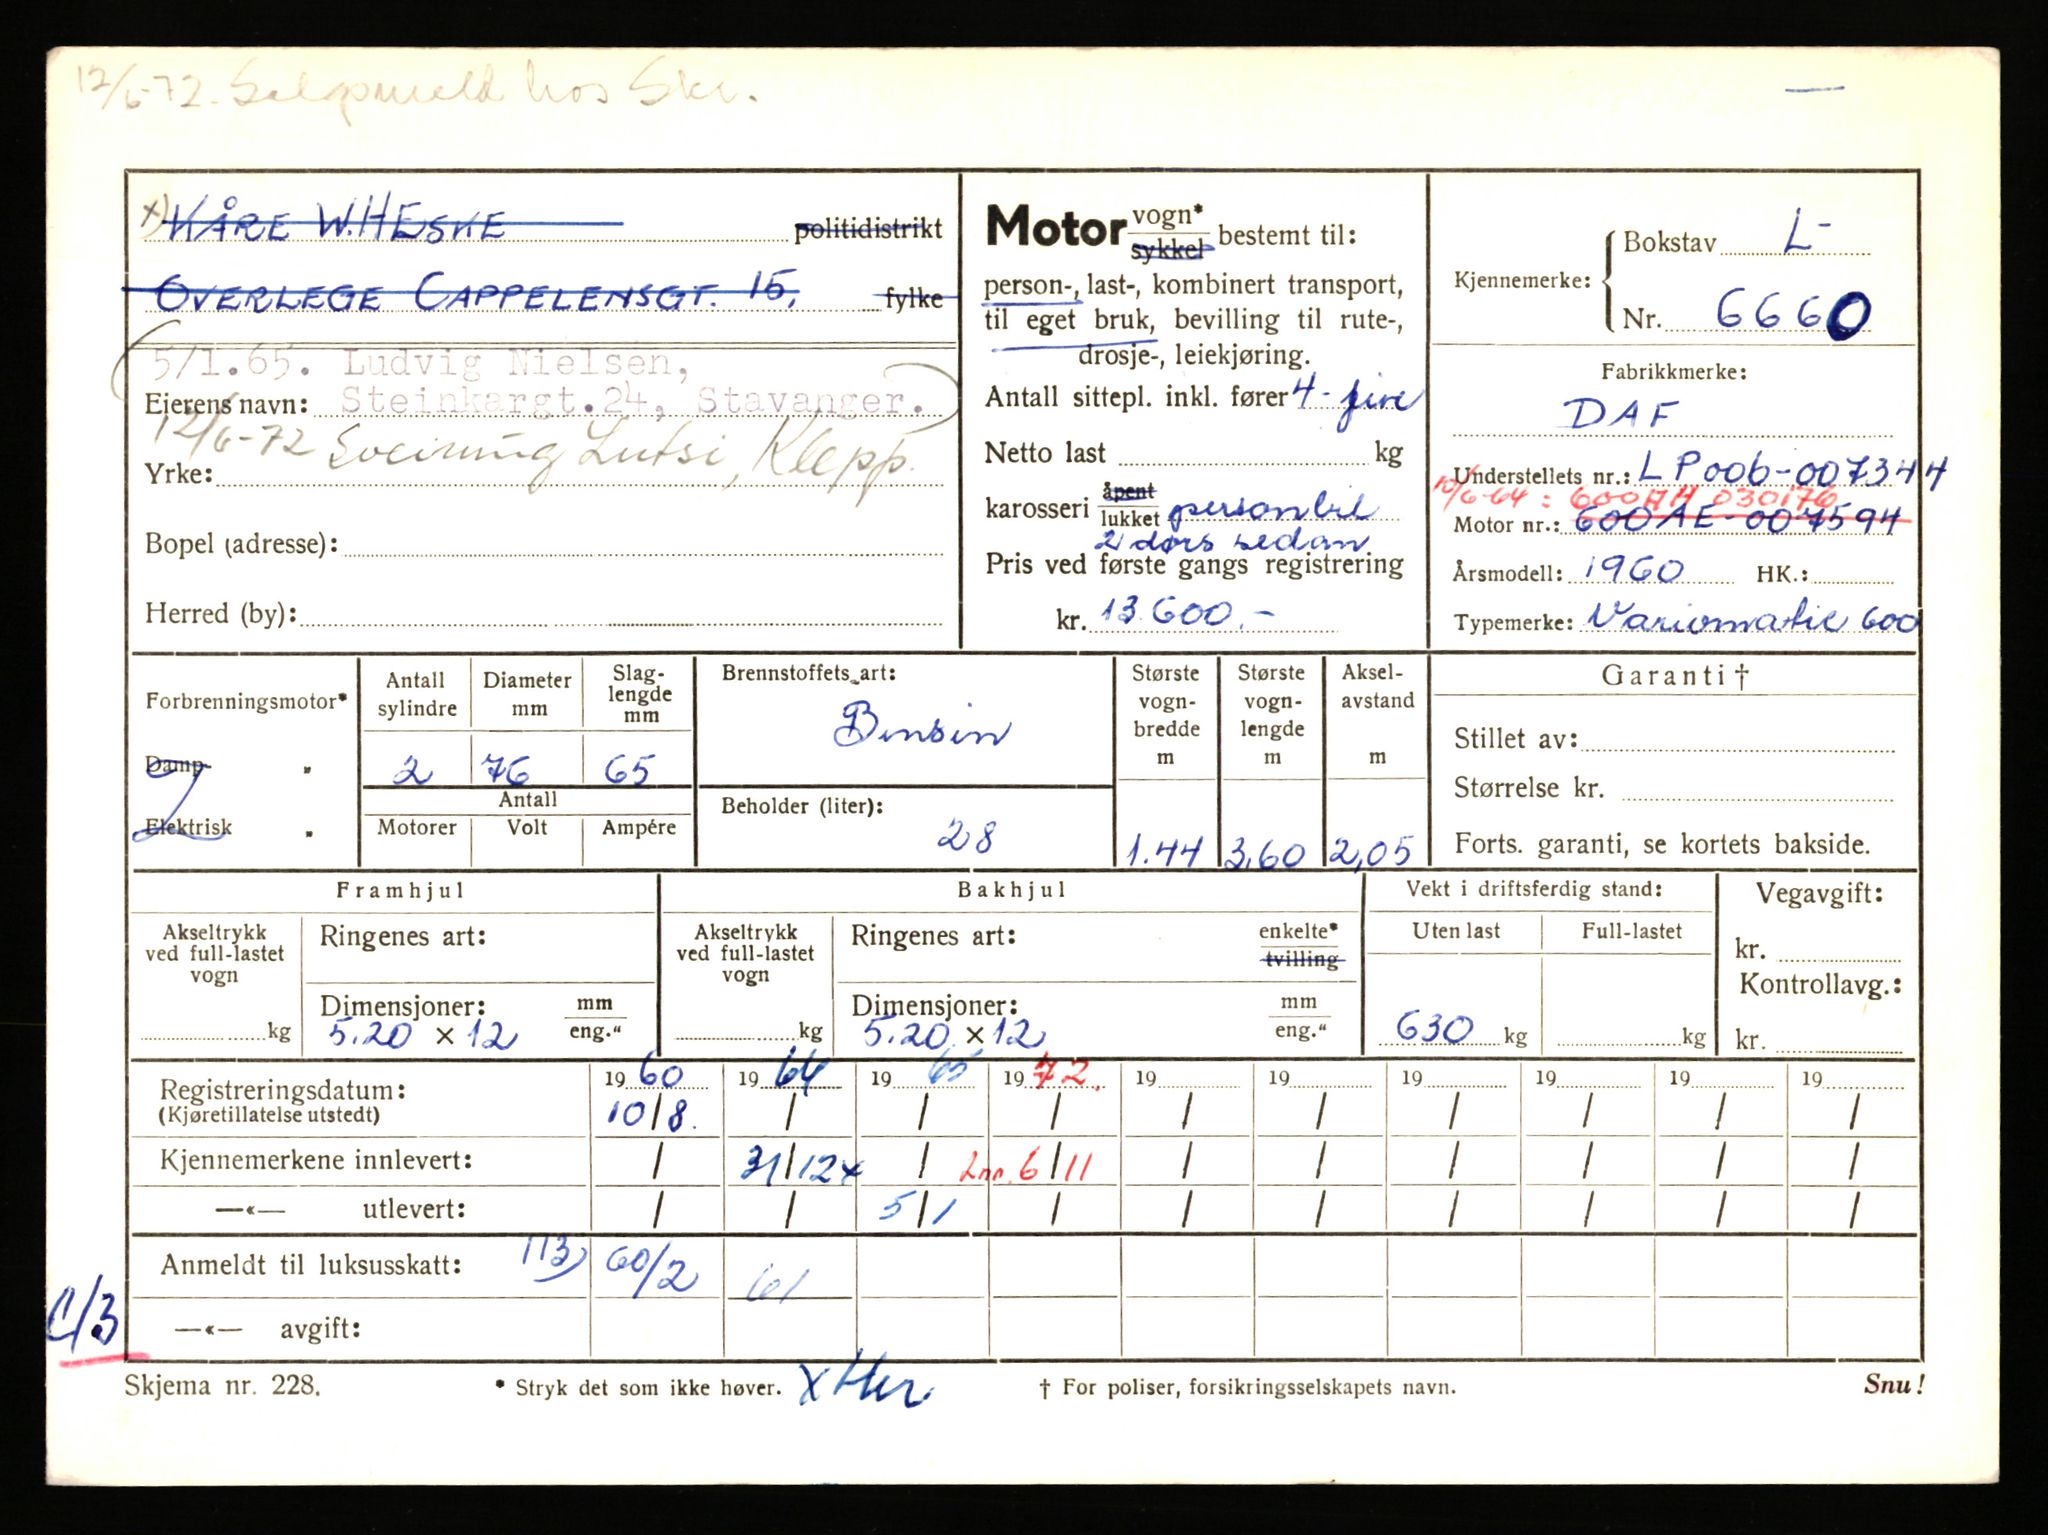 12/6-72. Salgsmeld hos Skr.
x) KÅRE W. HESKE politidistrikt
OVERLEGE CAPPELENSGT. 15, fylke
5/1.65. Ludvig Nielsen,
Eierens navn: Steinkargt.24, Stavanger.
12/6-72 Sveinung Lutsi, Klepp.
Yrke:
Bopel (adresse):
Herred (by):
Motor vogn* sykkel bestemt til:
person-, last-, kombinert transport,
til eget bruk, bevilling til rute-,
drosje-, leiekjøring.
Antall sittepl. inkl. fører 4 - fire
Netto last kg
karosseri åpent lukket personbil
2 dørs sedan
Pris ved første gangs registrering
kr. 13 600.-
Kjennemerke: Bokstav L-
Nr. 6660
Fabrikkmerke:
DAF
Understellets nr.: LP006-007344
10/6-64: 600AH 030176
Motor nr.: 600AE-007594
Årsmodell: 1960 HK.:
Typemerke: Variomatic 600
Forbrenningsmotor*
Damp- "
Elektrisk "
Antall sylindre Diameter mm Slag-lengde mm
2 76 65
Antall
Motorer Volt Ampére
Brennstoffets art:
Bensin
Beholder (liter):
28
Største vogn-bredde m Største vogn-lengde m Aksel-avstand m
1.44 3,60 2,05
Garanti †
Stillet av:
Størrelse kr.
Forts. garanti, se kortets bakside.
Framhjul
Akseltrykk ved full-lastet vogn kg
Ringenes art:
Dimensjoner: mm eng."
5.20 x 12
Bakhjul
Akseltrykk ved full-lastet vogn kg
Ringenes art: enkelte* tvilling
Dimensjoner: mm eng."
5.20 x 12
Vekt i driftsferdig stand:
Uten last Full-lastet
630 kg kg
Vegavgift:
kr.
Kontrollavg.:
kr.
Registreringsdatum: 1960 1964 1965 1972. 19 19 19 19 19 19
(Kjøretillatelse utstedt) 10/8. / / / / / / / / /
Kjennemerkene innlevert: / 31/12x / Lnr. 6/11 / / / / / /
—«— utlevert: / / 5/1 / / / / / / /
Anmeldt til luksusskatt: 113) 60/2 61
C/3
—«— avgift:
Skjema nr. 228. * Stryk det som ikke høver. x Her † For poliser, forsikringsselskapets navn. Snu!